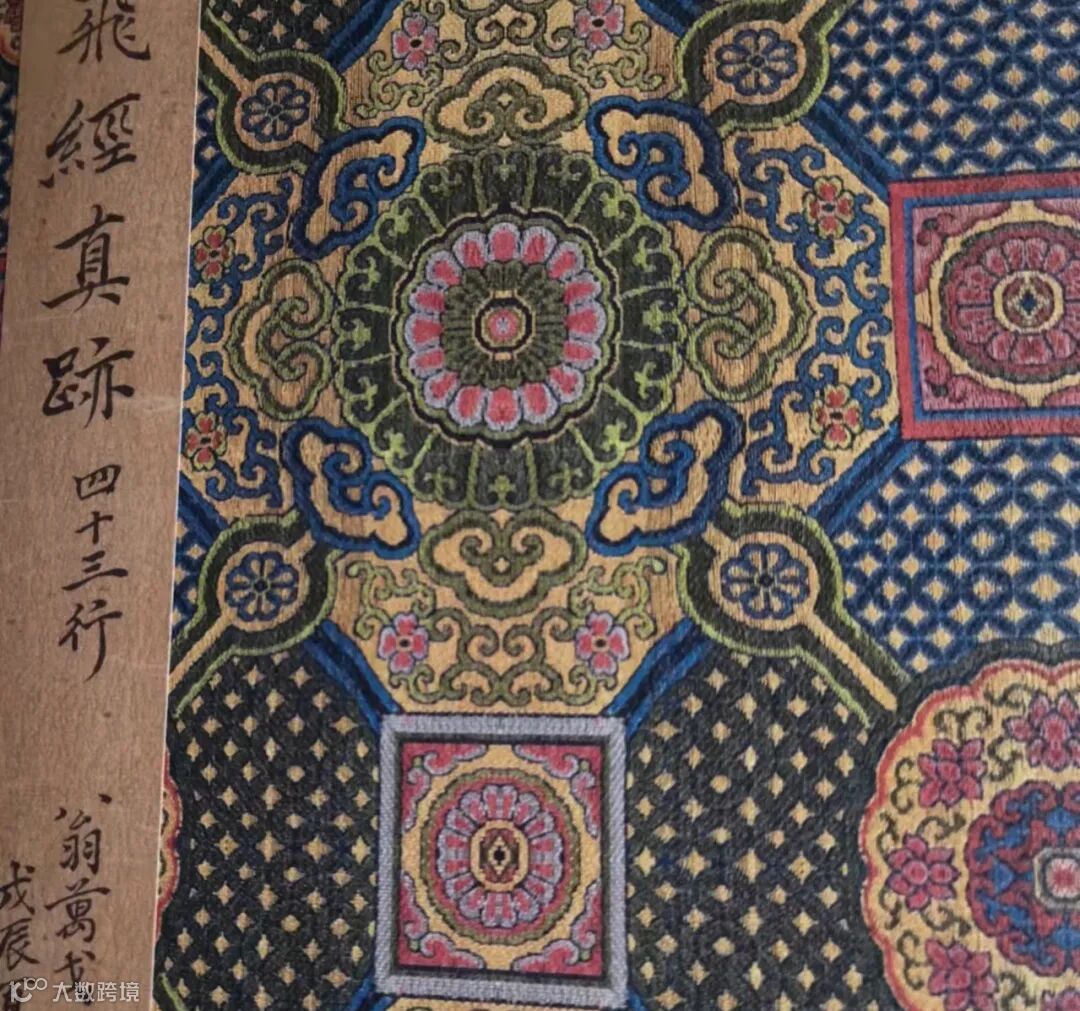 飛經真跡 四十三行
翁萬戈
戊辰
大数跨境